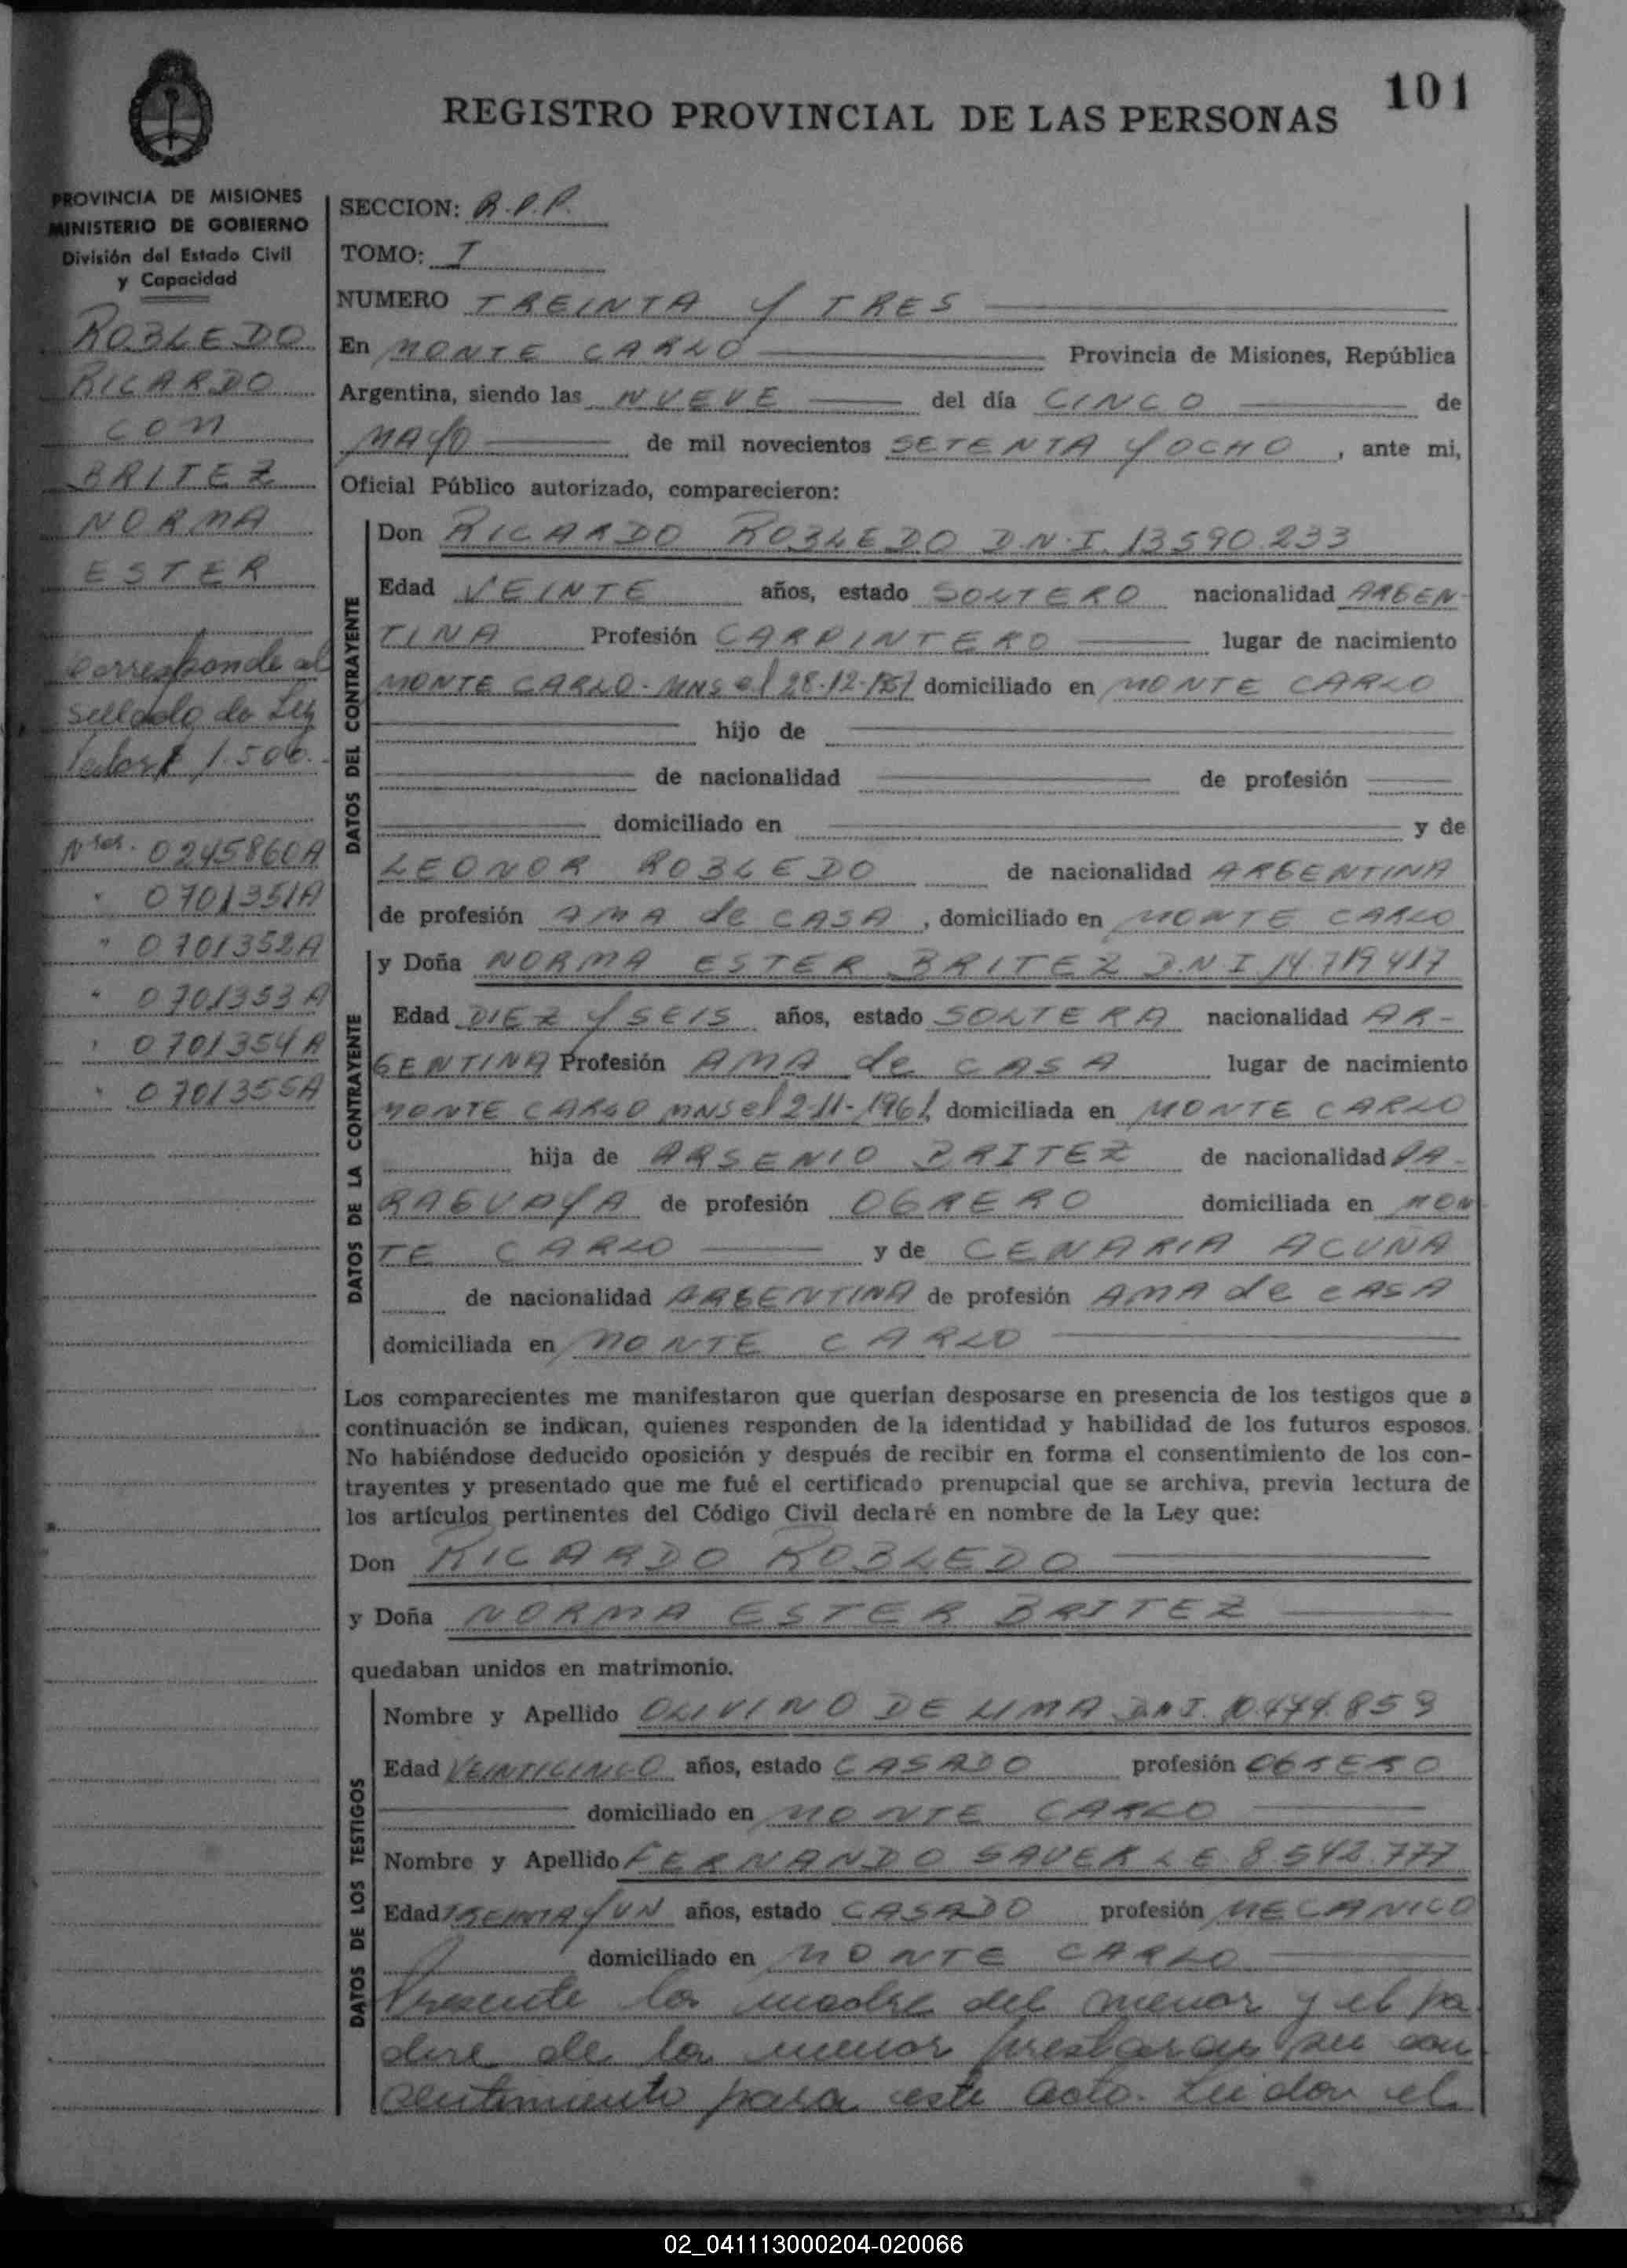 101
REGISTRO PROVINCIAL DE LAS PERSONAS
PROVINCIA DE MISIONES
MINISTERIO DE GOBIERNO
División del Estado Civil
y Capacidad
ROBLEDO
RICARDO
CON
BRITEZ
NORMA
ESTER
Corresponde al
sellado de Ley
Valor $ 1.500.
Nros. 0245860A
" 0701351A
" 0701352A
" 0701353A
" 0701354A
" 0701355A
SECCION: R.P.P.
TOMO: I
NUMERO TREINTA Y TRES
En MONTE CARLO Provincia de Misiones, República
Argentina, siendo las NUEVE del día CINCO de
MAYO de mil novecientos SETENTA Y OCHO, ante mi,
Oficial Público autorizado, comparecieron:
DATOS DEL CONTRAYENTE
Don RICARDO ROBLEDO D.N.I. 13590.233
Edad VEINTE años, estado SOLTERO nacionalidad ARGEN-
TINA Profesión CARPINTERO lugar de nacimiento
MONTE CARLO - MNS el 28-12- domiciliado en MONTE CARLO
hijo de
de nacionalidad de profesión
domiciliado en y de
LEONOR ROBLEDO de nacionalidad ARGENTINA
de profesión AMA de CASA, domiciliado en MONTE CARLO
DATOS DE LA CONTRAYENTE
y Doña NORMA ESTER BRITEZ D.N.I 14.719417
Edad DIEZ Y SEIS años, estado SOLTERA nacionalidad AR-
GENTINA Profesión AMA de CASA lugar de nacimiento
MONTE CARLO MNS el 2-11-1961, domiciliada en MONTE CARLO
hija de ARSENIO BRITEZ de nacionalidad PA-
RAGUAYA de profesión OBRERO domiciliada en MON
TE CARLO y de CENARIA ACUÑA
de nacionalidad ARGENTINA de profesión AMA de CASA
domiciliada en MONTE CARLO
Los comparecientes me manifestaron que querían desposarse en presencia de los testigos que a
continuación se indican, quienes responden de la identidad y habilidad de los futuros esposos.
No habiéndose deducido oposición y después de recibir en forma el consentimiento de los con-
trayentes y presentado que me fué el certificado prenupcial que se archiva, previa lectura de
los artículos pertinentes del Código Civil declaré en nombre de la Ley que:
Don RICARDO ROBLEDO
y Doña NORMA ESTER BRITEZ
quedaban unidos en matrimonio.
DATOS DE LOS TESTIGOS
Nombre y Apellido OLIVINO DE LIMA D.N.I. 10.474.859
Edad VEINTICINCO años, estado CASADO profesión OBRERO
domiciliado en MONTE CARLO
Nombre y Apellido FERNANDO SAUER L E 8.542.777
Edad TREINTA Y UN años, estado CASADO profesión MECANICO
domiciliado en MONTE CARLO
Presente la madre del menor y el pa
dre de la menor prestaron su con
sentimiento para este acto. Leida el
02_041113000204-020066